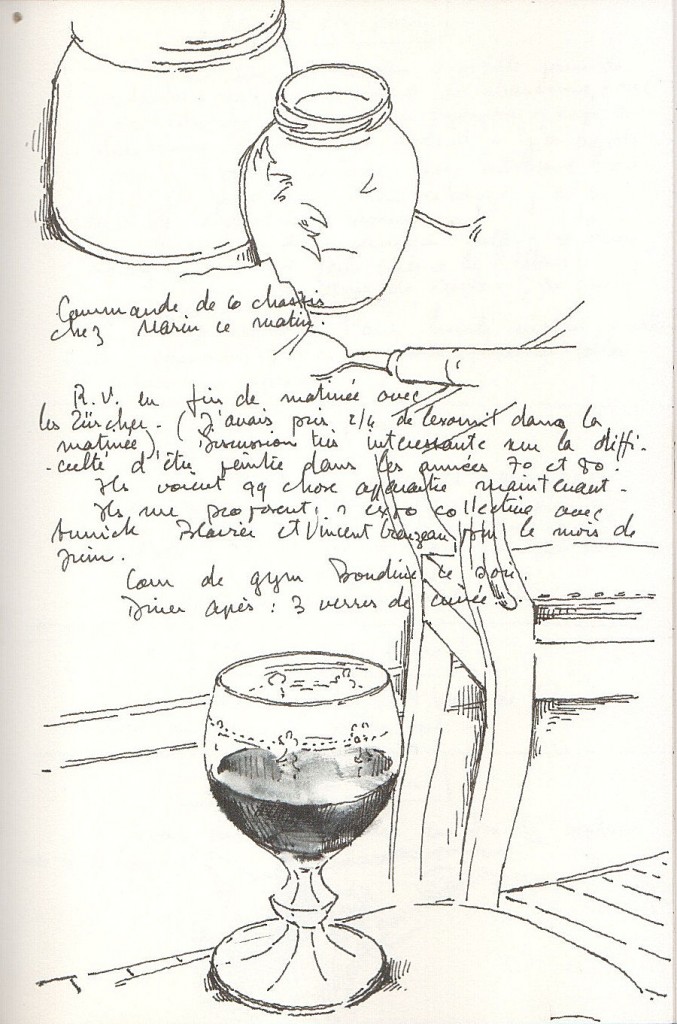 Commande de 60 chassis
chez Marin ce matin.
R.V. en fin de matinée avec
les Zürcher. (J'avais pris 1/4 de Lexomil dans la
matinée). Discussion très intéressante sur la diffi-
-culté d'être peintre dans les années 70 et 80.
Ils voient qq chose apparaître maintenant.
Ils me proposent 1 expo collective avec
Annick et Vincent pour le mois de
Juin.
Cour de gym ce soir.
Diner après : 3 verres de cuvée.